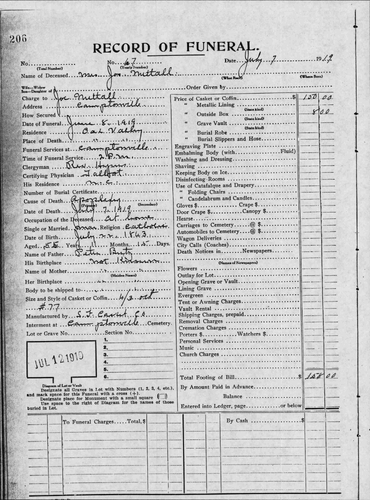 206
RECORD OF FUNERAL.
No. No. 67 Date July 7 1919
(Total Number) (Yearly Number)
Name of Deceased Mrs. Jos. Nuttall.
(What Race) (Where Born)
Order Given by
Charge to Joe Nuttall
Address Camptonville
How Secured
Date of Funeral June 8, 1919
Residence Oak Valley
Place of Death
Funeral Services at Camptonville
Time of Funeral Service 2 P.M.
Clergyman Rev.
Certifying Physician Talbot
His Residence
Number of Burial Certificate
Cause of Death Apoplexy
Date of Death July 2, 1919
Occupation of the Deceased at home
Single or Married Religion Catholic
Date of Birth 1863
Aged Years 11 Months 15 Days
Name of Father Peter
His Birthplace Not Known
Name of Mother " "
(Maiden Name)
Her Birthplace
Body to be shipped to
Size and Style of Casket or Coffin 6/3 Oct
#77
Manufactured by S. F. Casket Co
Interment at Camptonville Cemetery
Lot or Grave No.
1
2
3
4
5
6
JUL 12 1919
Diagram of Lot or Vault
Designate all Graves in Lot with Numbers (1, 2, 3, 4, etc.),
and mark space for this Funeral with a cross (+)
Designate place for Monument with a small square
Use space to the right of Diagram for the names of those
buried in Lot.
Price of Casket or Coffin $ 150 00
" Metallic Lining
(State kind)
" Outside Box 8 00
(State kind)
" Grave Vault
(State kind)
" Burial Robe
" Burial Slippers and Hose
Engraving Plate
Embalming Body (with Fluid)
Washing and Dressing
Shaving
Keeping Body on Ice
Disinfecting Rooms
Use of Catafalque and Drapery
" Folding Chairs
" Candelabrum and Candles
Gloves $ Door $
Door Crape $ Crape $
Hearse
Carriages to Cemetery @ $
Automobiles to Cemetery @ $
Wagon Deliveries
City Calls (Coaches)
Death Notices in Newspapers
Flowers
Outlay for Lot
Opening Grave or Vault
Lining Grave
Evergreen
Tent or Awning Charges
Vault Rental
Shipping Charges, prepaid
Removal Charges
Cremation Charges
Porters $ Watchers $
Personal Services
Music
Church Charges
Total Footing of Bill $ 158 00
By Amount Paid in Advance
Balance
Entered into Ledger, page or below $
To Funeral Charges Total, $ To Funeral Charges Total, $